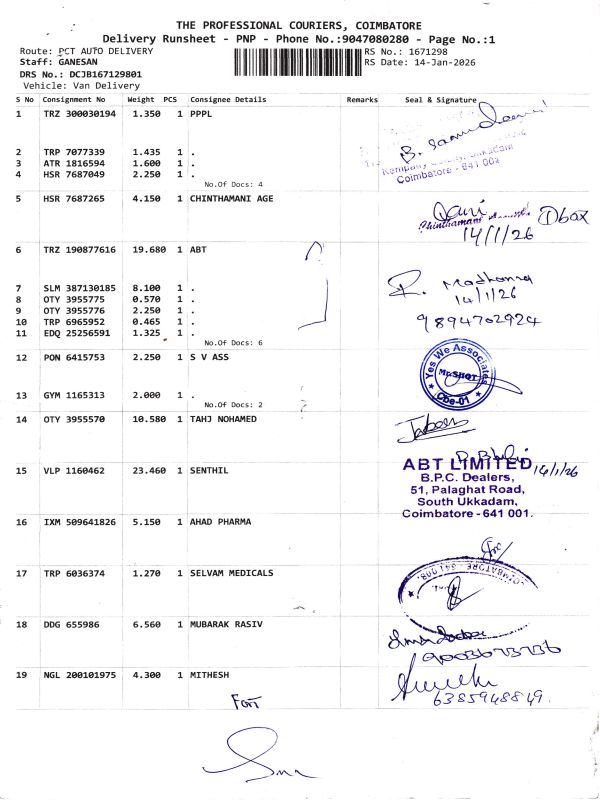 THE PROFESSIONAL COURIERS, COIMBATORE
Delivery Runsheet - PNP - Phone No.:9047080280 - Page No.:1
Route: PCT AUTO DELIVERY RS No.: 1671298
Staff: GANESAN RS Date: 14-Jan-2026
DRS No.: DCJB167129801
Vehicle: Van Delivery
S No Consignment No Weight PCS Consignee Details Remarks Seal & Signature
1 TRZ 300030194 1.350 1 PPPL
2 TRP 7077339 1.435 1 .
3 ATR 1816594 1.600 1 .
4 HSR 7687049 2.250 1 .
Coimbatore - 641 001
No.Of Docs: 4
5 HSR 7687265 4.150 1 CHINTHAMANI AGE
Chinthamani
14/1/26
6 TRZ 190877616 19.680 1 ABT
7 SLM 387130185 8.100 1 .
8 OTY 3955775 0.570 1 .
14/1/26
9 OTY 3955776 2.250 1 .
10 TRP 6965952 0.465 1 .
9894702924
11 EDQ 25256591 1.325 1 .
No.Of Docs: 6
12 PON 6415753 2.250 1 S V ASS
Yes We Associates
Cbe-01
13 GYM 1165313 2.000 1 .
No.Of Docs: 2
14 OTY 3955570 10.580 1 TAHJ NOHAMED
15 VLP 1160462 23.460 1 SENTHIL
ABT LIMITED 14/1/26
B.P.C. Dealers,
51, Palaghat Road,
South Ukkadam,
Coimbatore - 641 001.
16 IXM 509641826 5.150 1 AHAD PHARMA
17 TRP 6036374 1.270 1 SELVAM MEDICALS
18 DDG 655986 6.560 1 MUBARAK RASIV
19 NGL 200101975 4.300 1 MITHESH
6385948849.